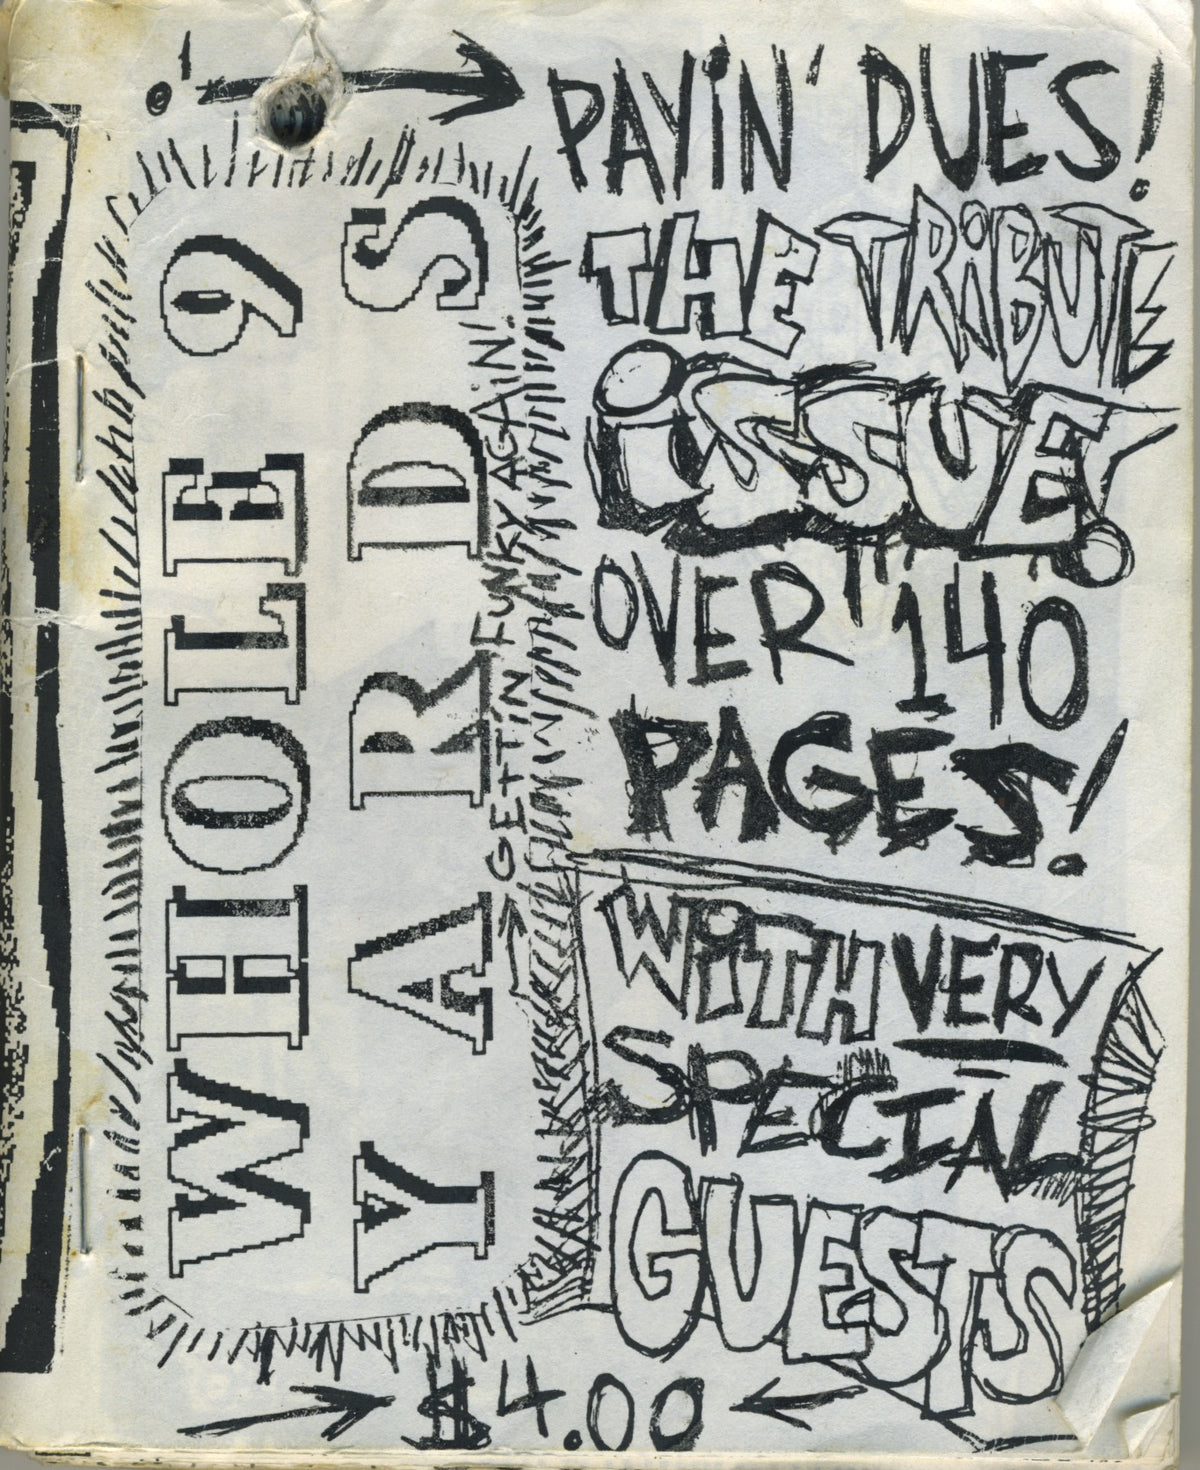 PAYiN' DUES!
THE TRiBUTE
iSSUE!
OVER 140
PAGES!
WiTH VERY
SPECIAL
GUESTS
WHOLE 9
YARDS
GETTiN FUNKY AGAiN!
$4.00